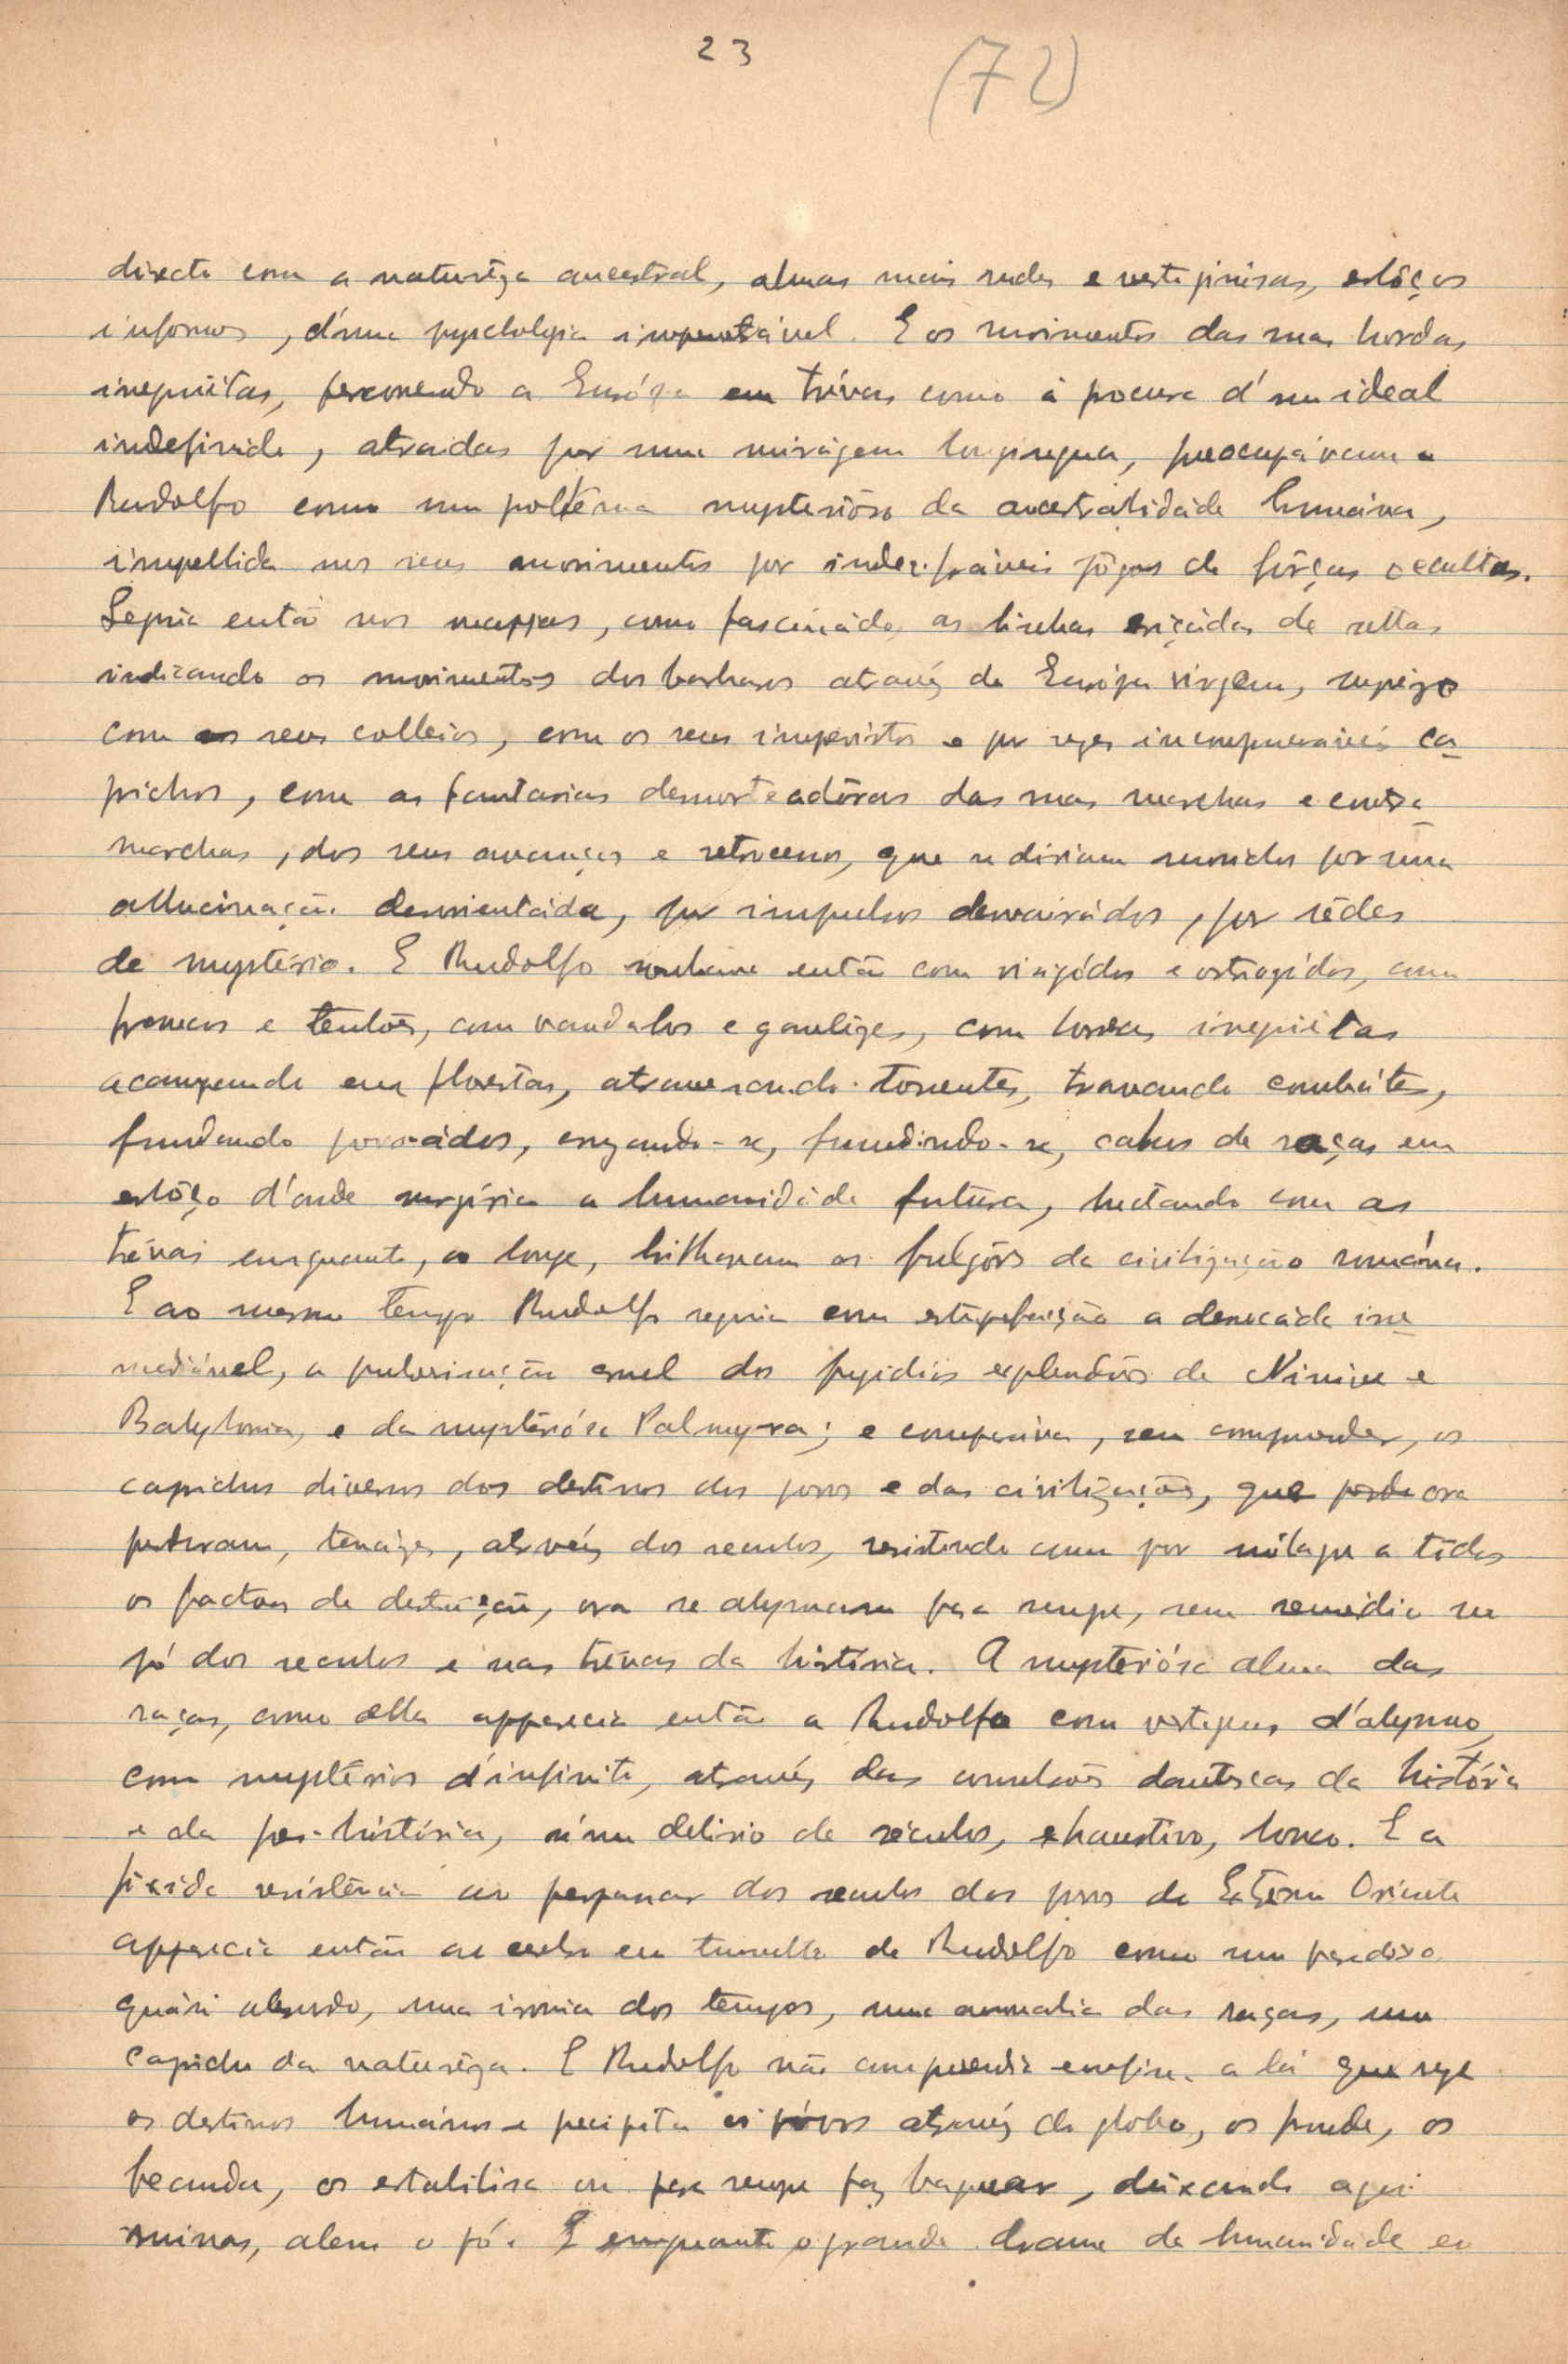 23 (72)
directo com a naturêza ancestral, almas mais rudes e vertiginósas, esbôços
informes, d'úma psychologia impenetrável. E os movimentos das suas hordas
inquiétas, percorrendo a Európa em trévas como à procura d'um ideal
indefinido, atraídas por uma mirágem longinqua, preocupávam a
Rudolfo como um problema mysterióso da ancestralidáde humána,
impellida nos seus movimentos por indecifráveis jôgos de fôrças occultas.
Seguia então nos mappas, como fascinádo, as linhas eriçádas de settas
indicando os movimentos dos barbaros através da Európa virgem, surpreso
com os seus colleios, com os seus imprevistos e por vezes incomprehensiveis ca-
prichos, com as fantasias desnorteadôras das suas marchas e contra-
marchas, dos seus avanços e retrocessos, que se diriam movidos por uma
allucinação desorientáda, por impulsos desvairádos, por sêdes
de mystério. E Rudolfo sonhava então com visigódos e ostrogódos, com
francos e teutões, com vandalos e gaulêzes, com hordas inquiétas
acampando em florestas, atravessando torrentes, travando combátes,
fundando povoádos, cruzando-se, fundindo-se, cahos de raças em
esbôço d'onde surgíria a humanidáde futúra, luctando com as
trévas emquanto, ao longe, brilhavam os fulgôres da civilização romána.
E ao mesmo tempo Rudolfo seguia com estupefacção a derrocáda irre-
mediável, a pulverisação cruel dos fugidios esplendôres de Ninive e
Babylonia, e da mysteriósa Palmyra; e comparáva, sem comprender, os
caprichos diversos dos destinos dos povos e das civilizações, que ora
perduram, tenázes, através dos seculos, resistindo como por milagre a tôdos
os factores de destruição, ora se abysmaram para sempre, sem remédio no
pó dos seculos e nas trévas da história. A mysteriósa alma das
raças, como ella apparecia então a Rudolfo com vertigens d'abysmo,
com mystérios d'infinito, através das convulsões dantescas da história
e da pre-história, n'um delirio de séculos, exhaustivo, louco. E a
rigida resistência ao perpassar dos seculos dos povos do Extremo Oriente
apparecia então ao cerebro em tumulto de Rudolfo como um paradoxo
quási absurdo, uma ironia dos tempos, uma anomalia das raças, um
capricho da naturêza. E Rudolfo não comprendia emfim a lei que rege
os destinos humános e precipita os póvos através do globo, os funde, os
fecunda, os estabilisa ou para sempre faz baquear, deixando aqui
ruinas, alem o pó. E emquanto o grande drama da humanidade em